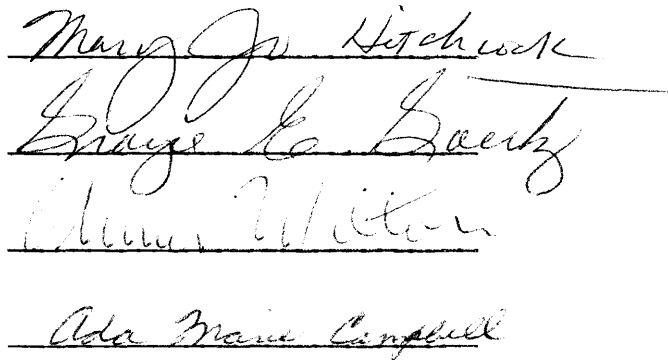 Mary Jo Hitchcock
Graye E. Goertz
Witten
Ada Marie Campbell